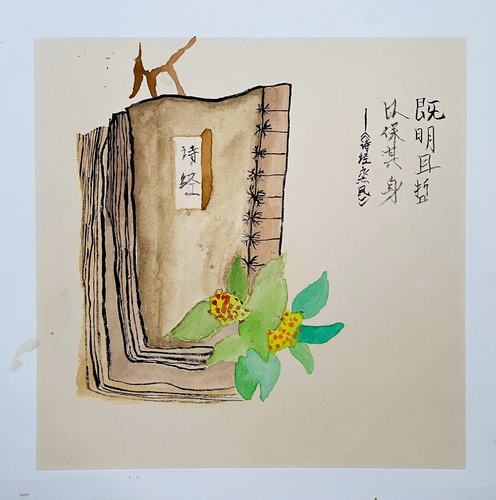 既明且哲
以保其身
——《诗经烝民》
诗经